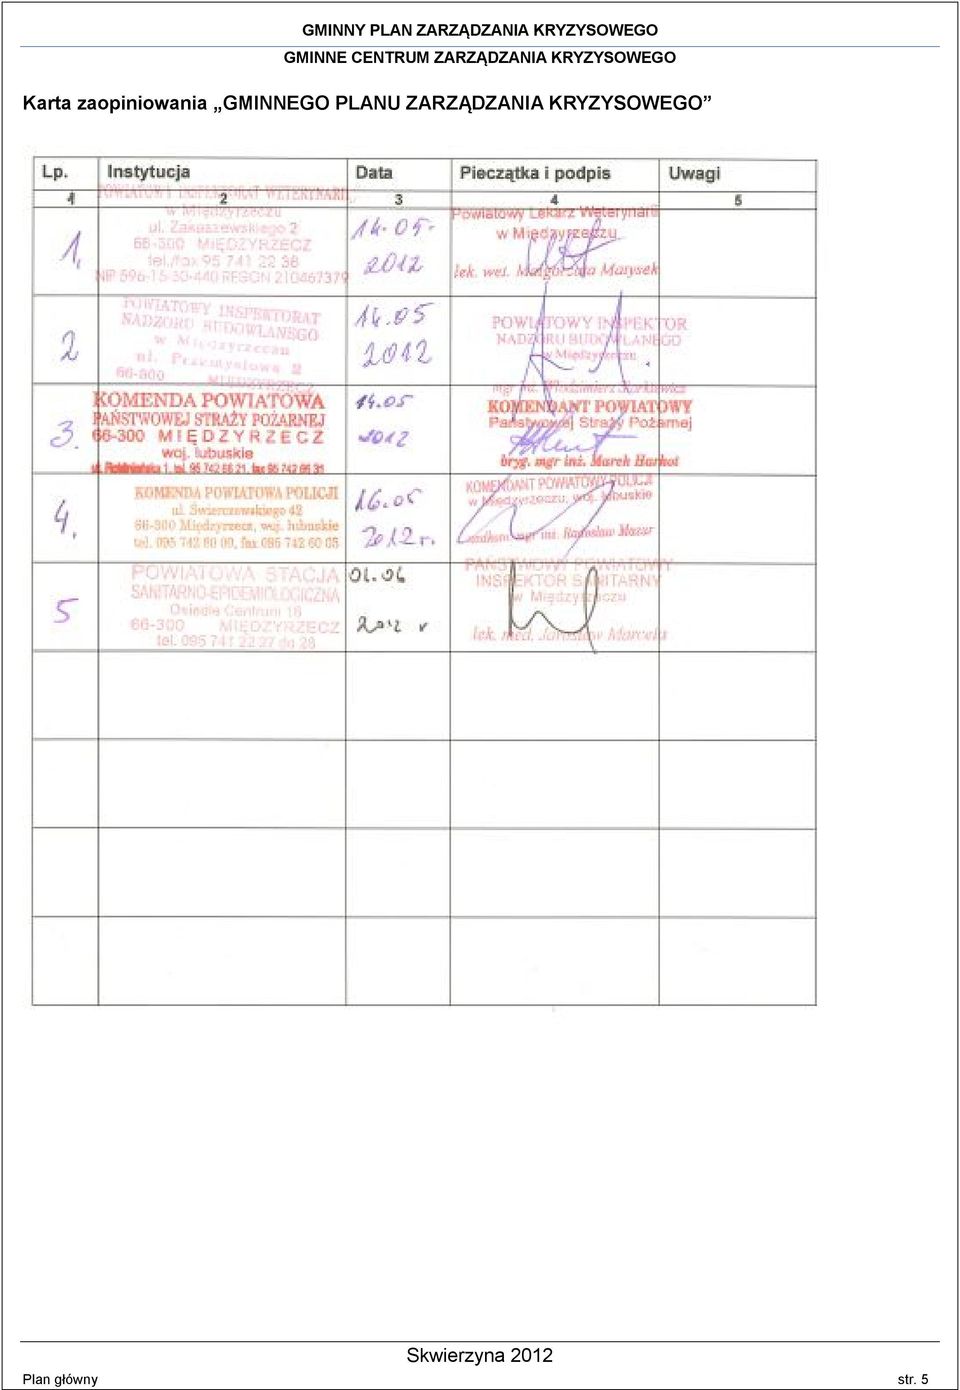 GMINNY PLAN ZARZĄDZANIA KRYZYSOWEGO
GMINNE CENTRUM ZARZĄDZANIA KRYZYSOWEGO
Karta zaopiniowania „GMINNEGO PLANU ZARZĄDZANIA KRYZYSOWEGO”
Lp. Instytucja Data Pieczątka i podpis Uwagi
1 2 3 4 5
1.
POWIATOWY INSPEKTORAT WETERYNARII
w Międzyrzeczu
ul. Zakaszewskiego 2
66-300 MIĘDZYRZECZ
tel./fax 95 741 22 38
NIP 596-15-30-440 REGON 210467379
14.05.
2012
Powiatowy Lekarz Weterynarii
w Międzyrzeczu
lek. wet. Małgorzata Matysek
2
POWIATOWY INSPEKTORAT
NADZORU BUDOWLANEGO
w Międzyrzeczu
ul. Przemysłowa 2
66-300 MIĘDZYRZECZ
14.05
2012
POWIATOWY INSPEKTOR
NADZORU BUDOWLANEGO
w Międzyrzeczu
mgr inż. Włodzimierz
3.
KOMENDA POWIATOWA
PAŃSTWOWEJ STRAŻY POŻARNEJ
66-300 MIĘDZYRZECZ
woj. lubuskie
1, tel. 95 742 86 21, fax 95 742 86 31
14.05
2012
KOMENDANT POWIATOWY
Państwowej Straży Pożarnej
bryg. mgr inż. Marek Harkot
4.
KOMENDA POWIATOWA POLICJI
ul. Świerczewskiego 42
66-300 Międzyrzecz, woj. lubuskie
tel. 095 742 80 00, fax 095 742 60 05
16.05
2012r.
KOMENDANT POWIATOWY POLICJI
w Międzyrzeczu, woj. lubuskie
mgr inż. Radosław Mazur
5
POWIATOWA STACJA
SANITARNO-EPIDEMIOLOGICZNA
Osiedle Centrum 16
66-300 MIĘDZYRZECZ
tel. 095 741 22 27 do 28
01.06
2012 r
PAŃSTWOWY POWIATOWY
INSPEKTOR SANITARNY
w Międzyrzeczu
lek. med. Jarosław Marcela
Skwierzyna 2012
Plan główny str. 5